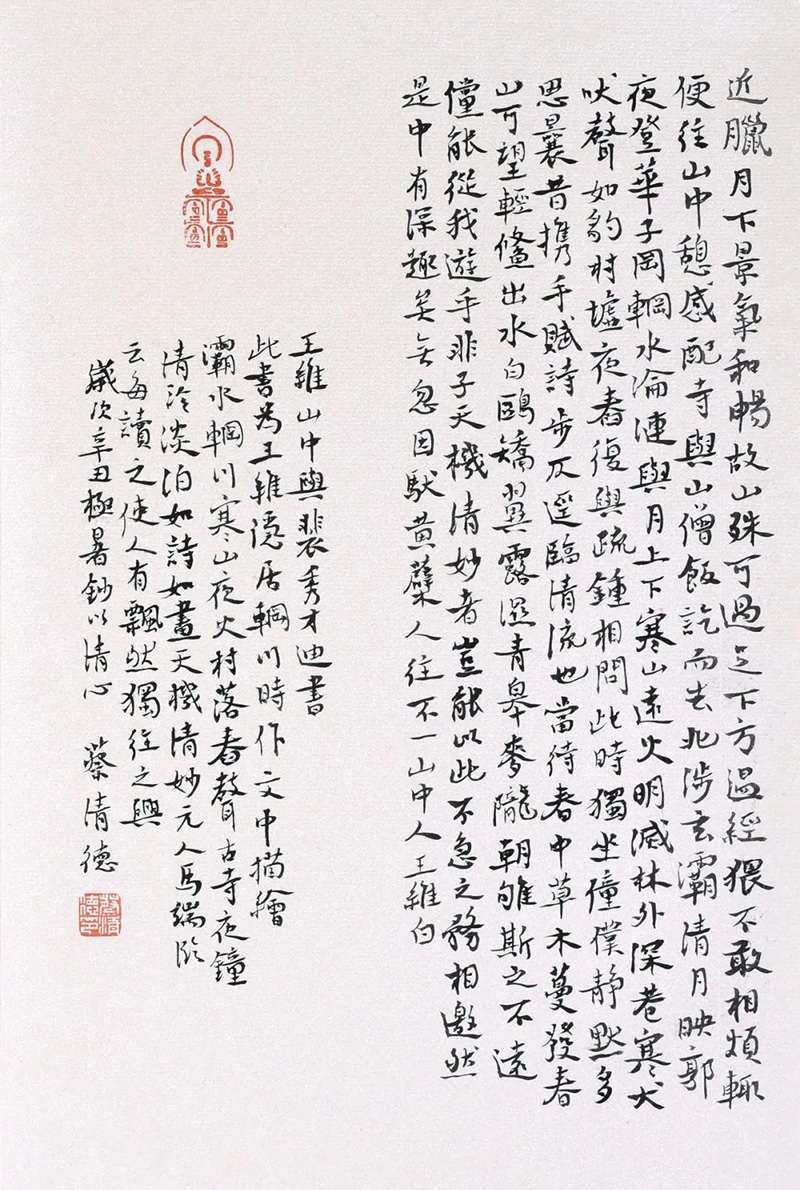 近臘月下景氣和暢故山殊可過足下方温經猥不敢相煩輒
便往山中憩感配寺與山僧飯訖而去北涉玄灞清月映郭
夜登華子岡輞水淪漣與月上下寒山遠火明滅林外深巷寒犬
吠聲如豹村墟夜舂復與疏鍾相間此時獨坐僮僕静默多
思曩昔携手賦詩步仄逕臨清流也當待春中草木蔓發春
山可望輕鯈出水白鷗矯翼露濕青皋麥隴朝雊斯之不遠
儻能從我遊乎非子天機清妙者豈能以此不急之務相邀然
是中有深趣矣無忽因馱黄蘗人往不一山中人王維白
王維山中與裴秀才迪書
此書為王維隱居輞川時作文中描繪
灞水輞川寒山夜火村落舂聲古寺夜鐘
清泠淡泊如詩如畫天機清妙元人馬端臨
云每讀之使人有飄然獨往之興
歲次辛丑極暑鈔以清心 蔡清德
蔡清德印